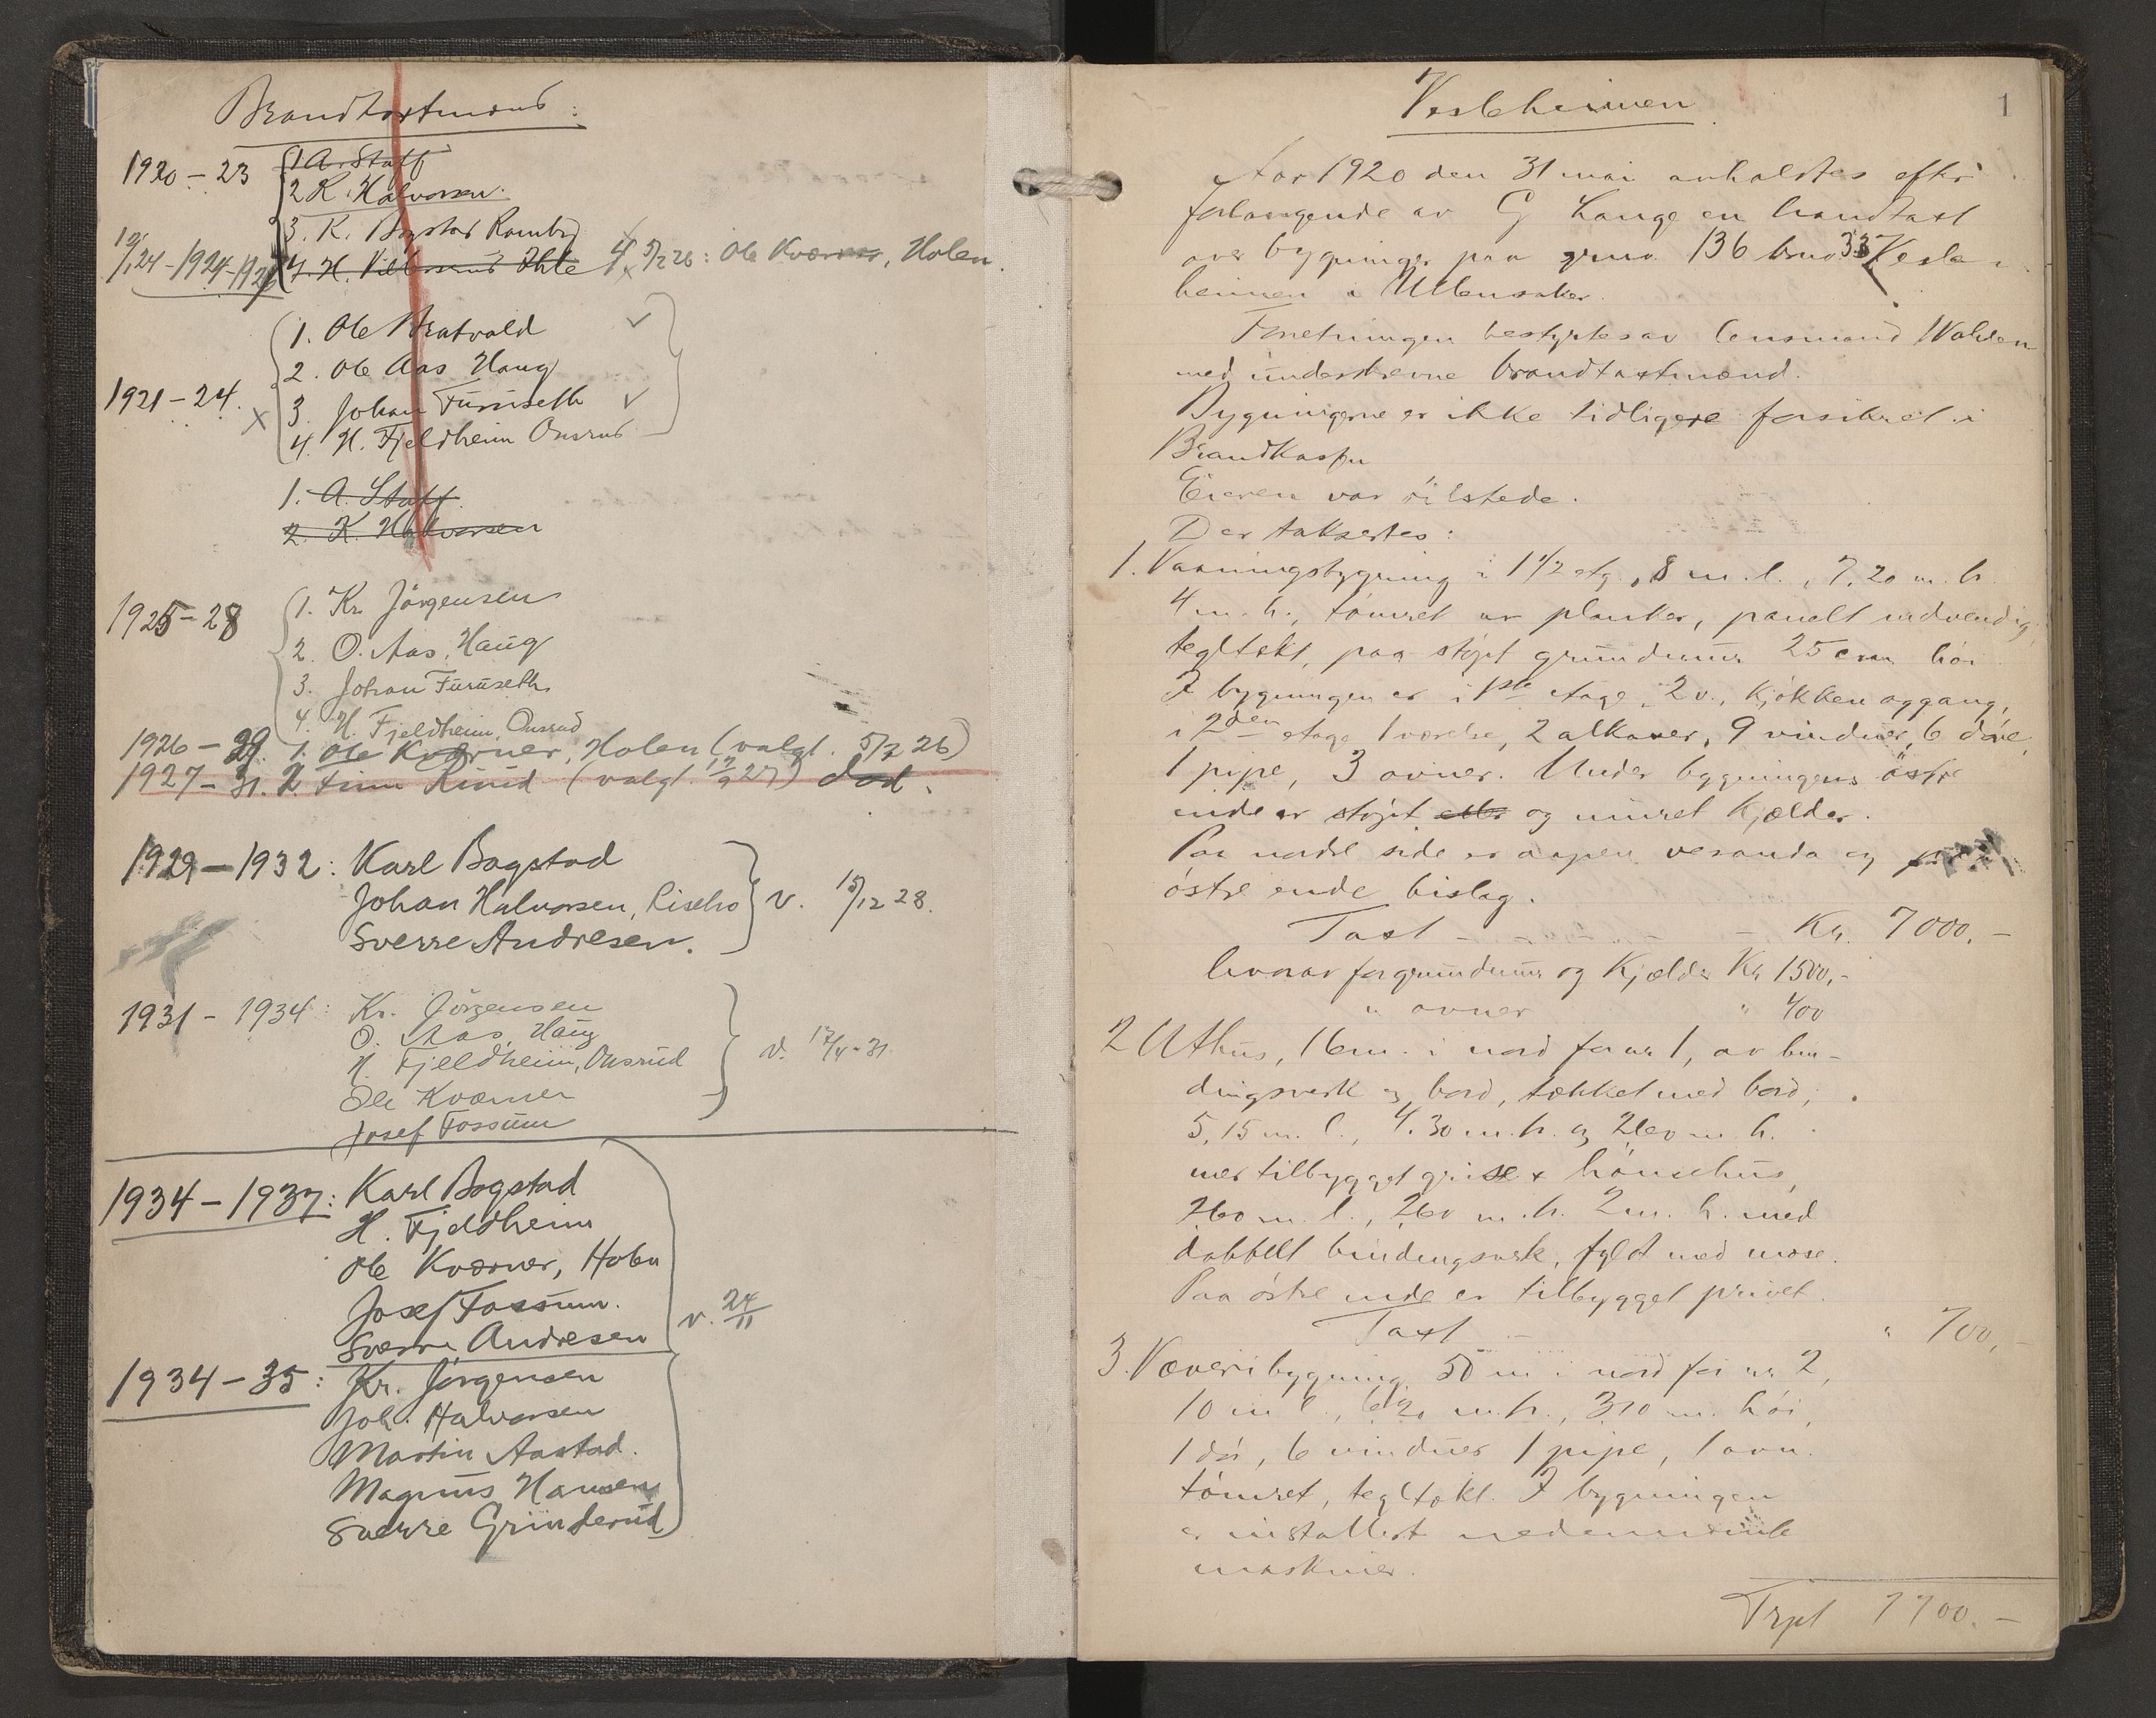 Brandtaxtmænd:
1920-23 1 A. Staff
2 K. Halvorsen.
3. K. Bogstad Romby
12/1 24-1924-1926 4. H. Ihle 4 5/2 26: Ole Kværner, Holen.
1. Ole Bratvold
2. Ole Aas Haug
1921-24. 3 Johan Furuseth
x 4. H. Fjeldheim Onsrud
1. A. Staff
2. K. Halvorsen
1925-28 1. Kr. Jörgensen
2. O. Aas, Haug
3. Johan Furuseth
4. H. Fjeldheim, Onsrud
1926-29. 1. Ole Kværner, Holen (valgt. 5/2 26)
1927-31. 2 Finn Ruud (valgt 17/9 27) död.
1929-1932: Karl Bogstad
Johan Halvorsen, v. 15/12 28.
Sverre Andresen.
1931-1934: Kr. Jörgensen
O. Aas, Haug
H. Fjeldheim, Onsrud v. 17/4-31
Ole Kværner
Josef Fossum
1934-1937: Karl Bogstad
H. Fjeldheim
Ole Kværner, Holen
Josef Fossum.
Sverre Andresen v. 24/11
1934-35: Kr. Jörgensen
Joh. Halvorsen
Martin Aastad.
Magnus Hansen
Sverre Grinderud
1
Vesleheimen
Aar 1920 den 31 mai avholdtes efter
forlangende av G Lange en brandtaxt
over bygninger paa grno. 136 brno 33 Vesle-
heimen i Ullensaker.
Forretningen bestyrtes av lensmand Wahlen
med underskrevne brandtaxtmænd.
Bygningerne er ikke tidligere forsikret i
Brandkassen
Eieren var tilstede.
Der taksertes:
1. Vaaningsbygning i 1 1/2 etg., 8 m. l., 7,20 m. b.
4 m. h., tömret av planker, panelt indvendig,
tegltekt, paa stöpt grundmur 25 cm höi
I bygningen er i 1ste etage 2 v., kjökken og gang,
i 2den etage 1 værelse, 2 alkover, 9 vinduer, 6 döre,
1 pipe, 3 ovner. Under bygningens östre
ende er stöpt eller og muret kjælder.
Paa nordre side er aapen veranda og paa
östre ende bislag.
Taxt - - - - Kr. 7000,-
hvorav for grundmur og Kjælder Kr 1500,-
" ovner " 400
2 Uthus, 16 m. i nord for nr 1, av bin-
dingsverk og bord, tækket med bord,
5,15 m. l., 4.30 m. b. og 2.60 m. h.
mer tilbygget grise & hönsehus,
2.60 m. l., 2.60 m. b. 2 m. h. med
dobbelt bindingsverk, fyldt med mose.
Paa östre ende er tilbygget privet.
Taxt - " 700,-
3. Væveribygning 50 m i nord for nr 2,
10 m l., 6,20 m. b., 3.10 m. höi,
1 dör, 6 vinduer 1 pipe, 1 ovn.
tömret, tegltekt. I bygningen
er installert nedennævnte
maskiner.
Trpt 7700.-